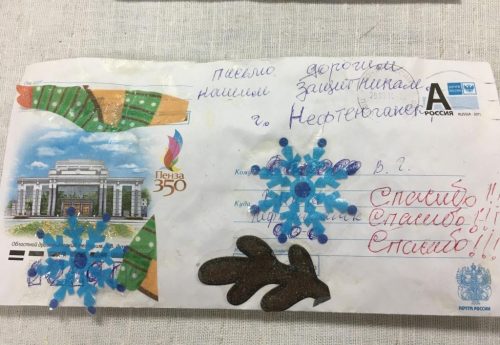 письмо дорогим
нашим защитникам
г. Нефтеюганск
А
РОССИЯ
Пенза
350
Кому
В. Г.
Куда
Спасибо!!!
Спасибо!!!
Спасибо!!!
Областной
ПОЧТА РОССИИ